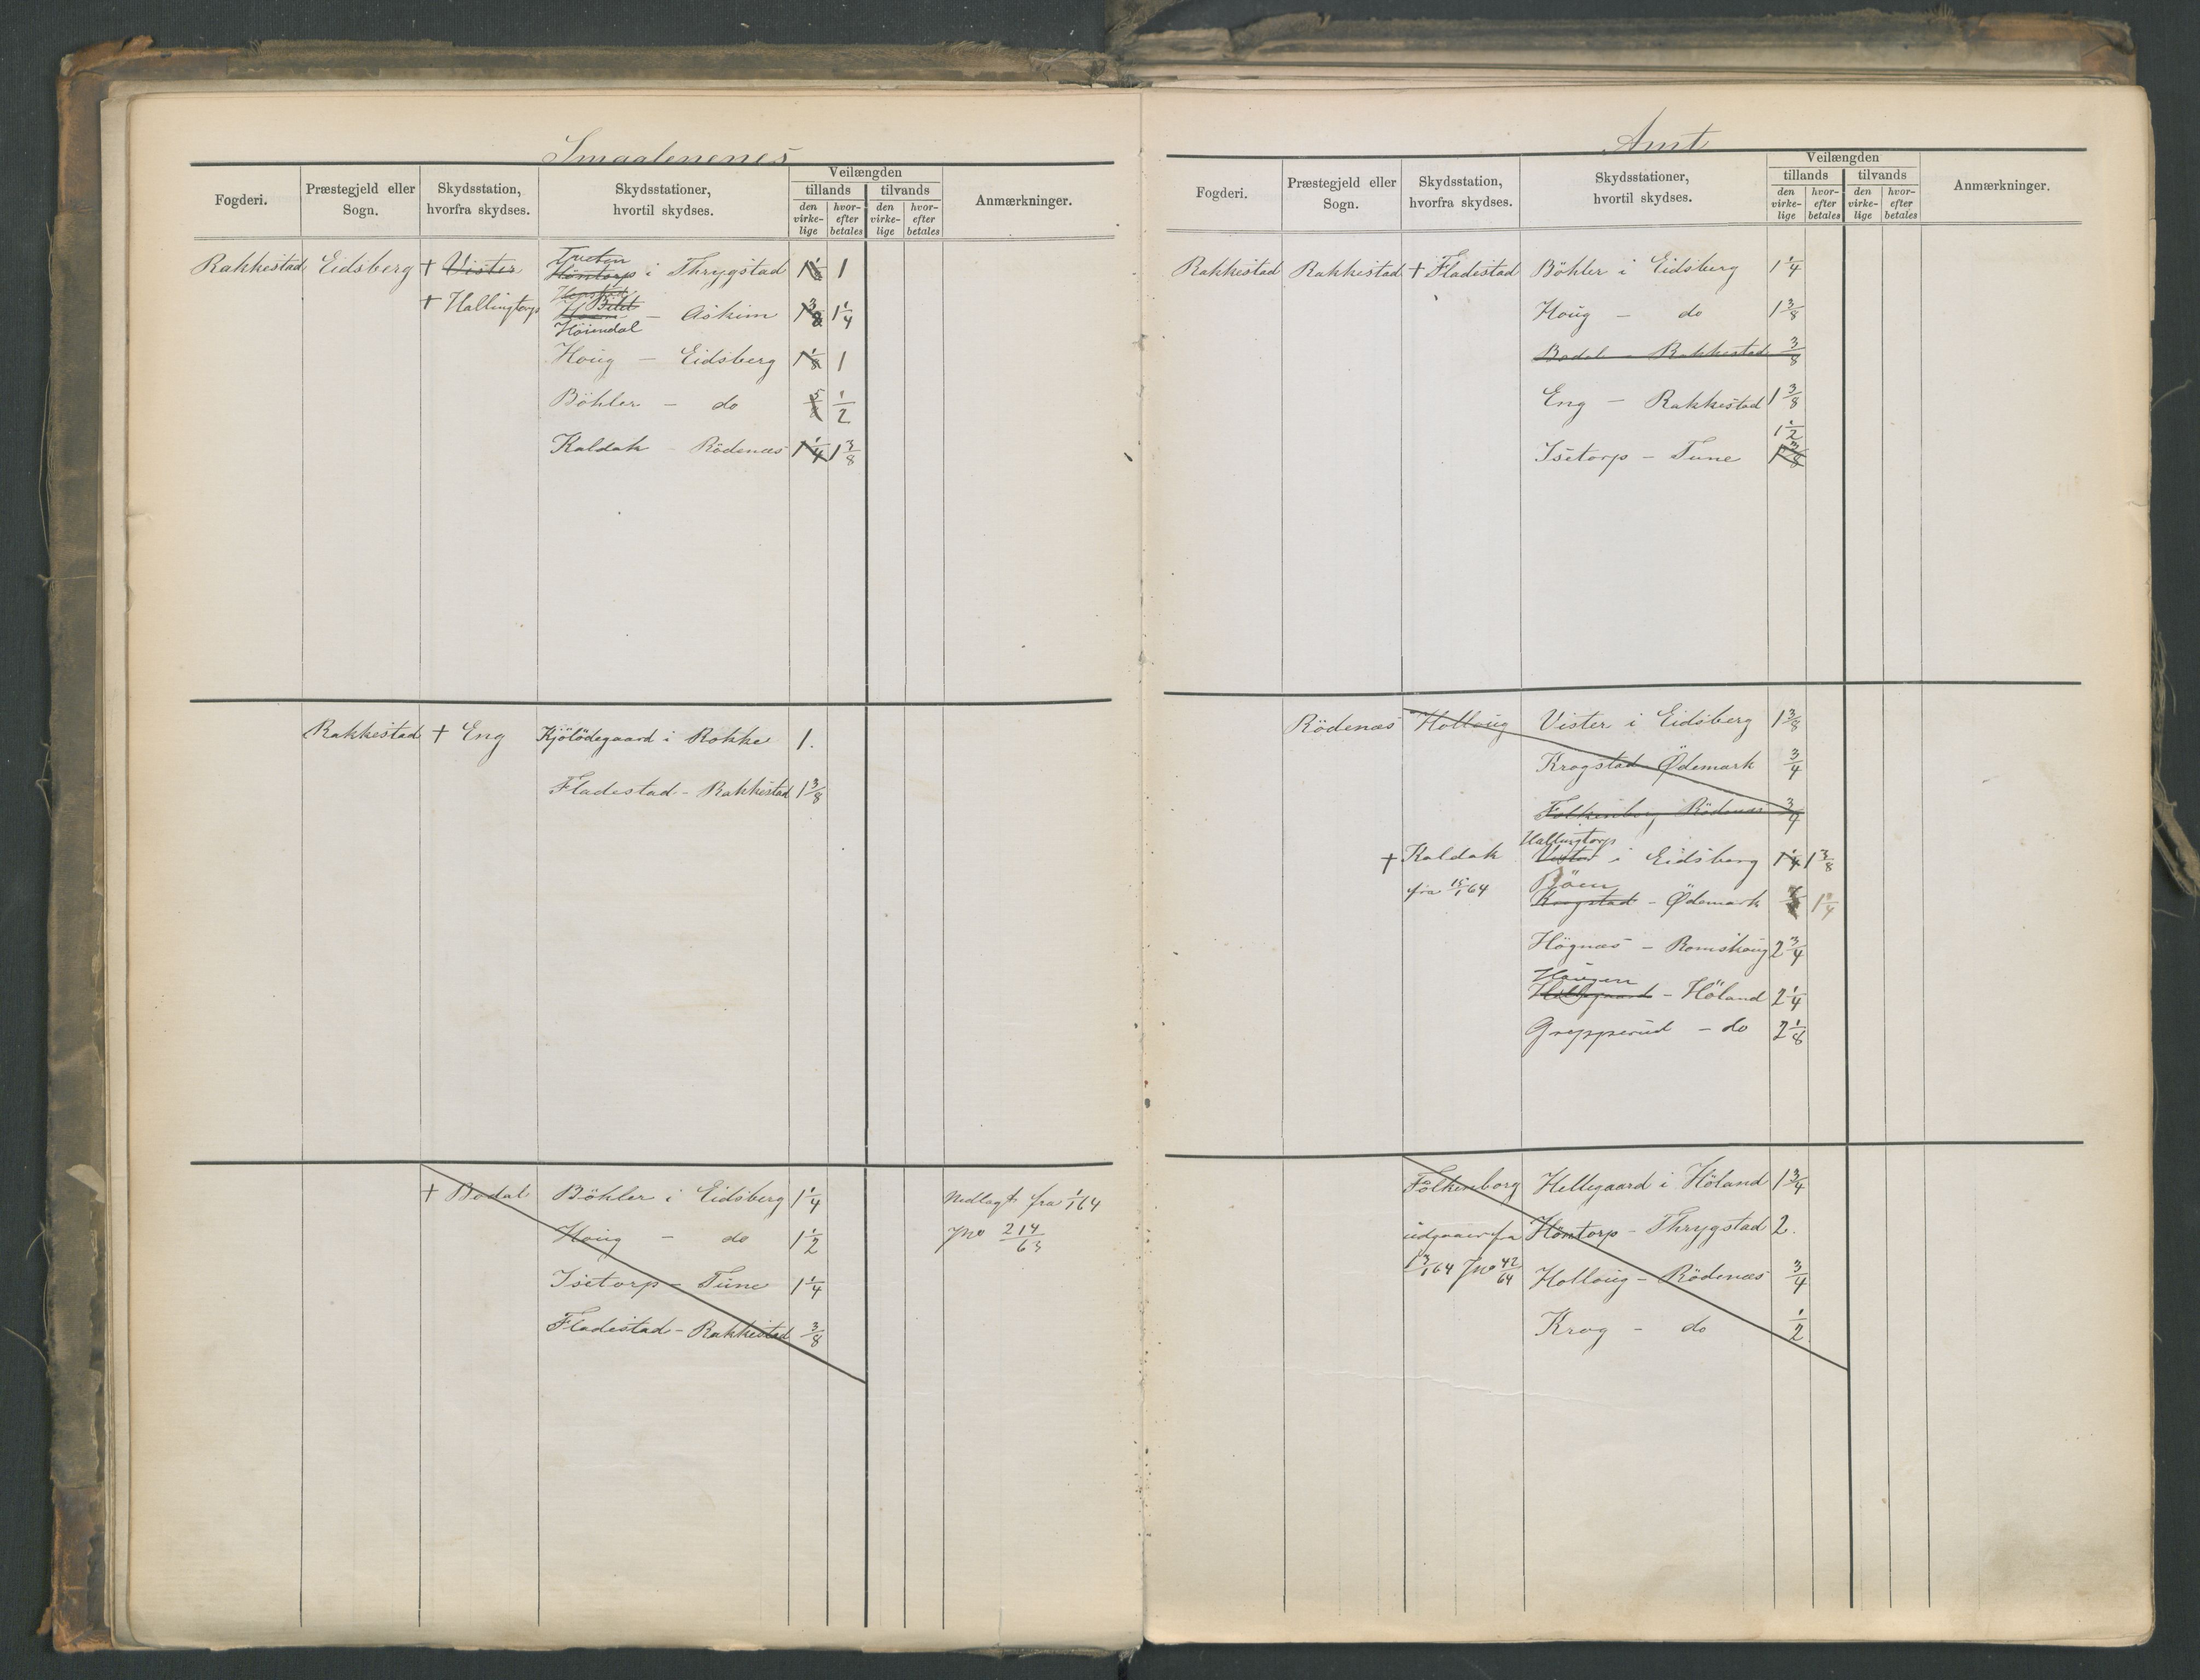 Smaalenenes
Fogderi.
Præstegjeld eller
Sogn.
Skydsstation,
hvorfra skydses.
Skydsstationer,
hvortil skydses.
Veilængden
tillands
tilvands
den virke-lige
hvor-efter betales
den virke-lige
hvor-efter betales
Anmærkninger.
Rakkestad Eidsberg + Vister
Höntorp i Thrygstad 1 1/8 1
+ Hallingtorp
Bilit
— Askim 1 3/8 1 1/4
Höiendal
Houg — Eidsberg 1 1/8 1
Böhler — do 5/8 1/2
Kaldak — Rödenæs 1 1/4 1 3/8
Rakkestad + Eng Kjölödegaard i Rokke 1.
Fladestad - Rakkestad 1 3/8
+ Bodal Böhler i Eidsberg 1 1/4 Nedlagt fra 1/1 64
Houg — do 1 1/2 Jno 214/63
Isetorp - Tune 1 1/4
Fladestad - Rakkestad 3/8
Amt
Fogderi.
Præstegjeld eller
Sogn.
Skydsstation,
hvorfra skydses.
Skydsstationer,
hvortil skydses.
Veilængden
tillands
tilvands
den virke-lige
hvor-efter betales
den virke-lige
hvor-efter betales
Anmærkninger.
Rakkestad Rakkestad + Fladestad Böhler i Eidsberg 1 1/4
Houg — do 1 3/8
Bodal - Rakkestad 3/8
Eng — Rakkestad 1 3/8
1 1/2
Isetorp - Tune 1 3/8
Rödenæs Holloug Vister i Eidsberg 1 3/8
Krogstad - Ødemark 3/4
Folkenborg Rödenæs 3/4
Hallingtorp
+ Kaldak Vister i Eidsberg 1 1/4 1 3/8
fra 15/1 64
Böen
Krogstad - Ødemark 1 1/4
Högnæs - Romskoug 2 3/4
Haugen
Hellegaard - Höland 2 1/4
Grepperud - do 2 1/8
Folkenborg Hellegaard i Höland 1 3/4
udgaaer fra Höntorp - Thrygstad 2.
13/1 64 Jno 42/64 Holloug - Rödenæs 3/4
Krog - do 1/2